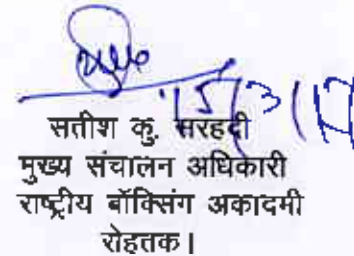 15/3/17
सतीश कु. सरहदी
मुख्य संचालन अधिकारी
राष्ट्रीय बॉक्सिंग अकादमी
रोहतक।